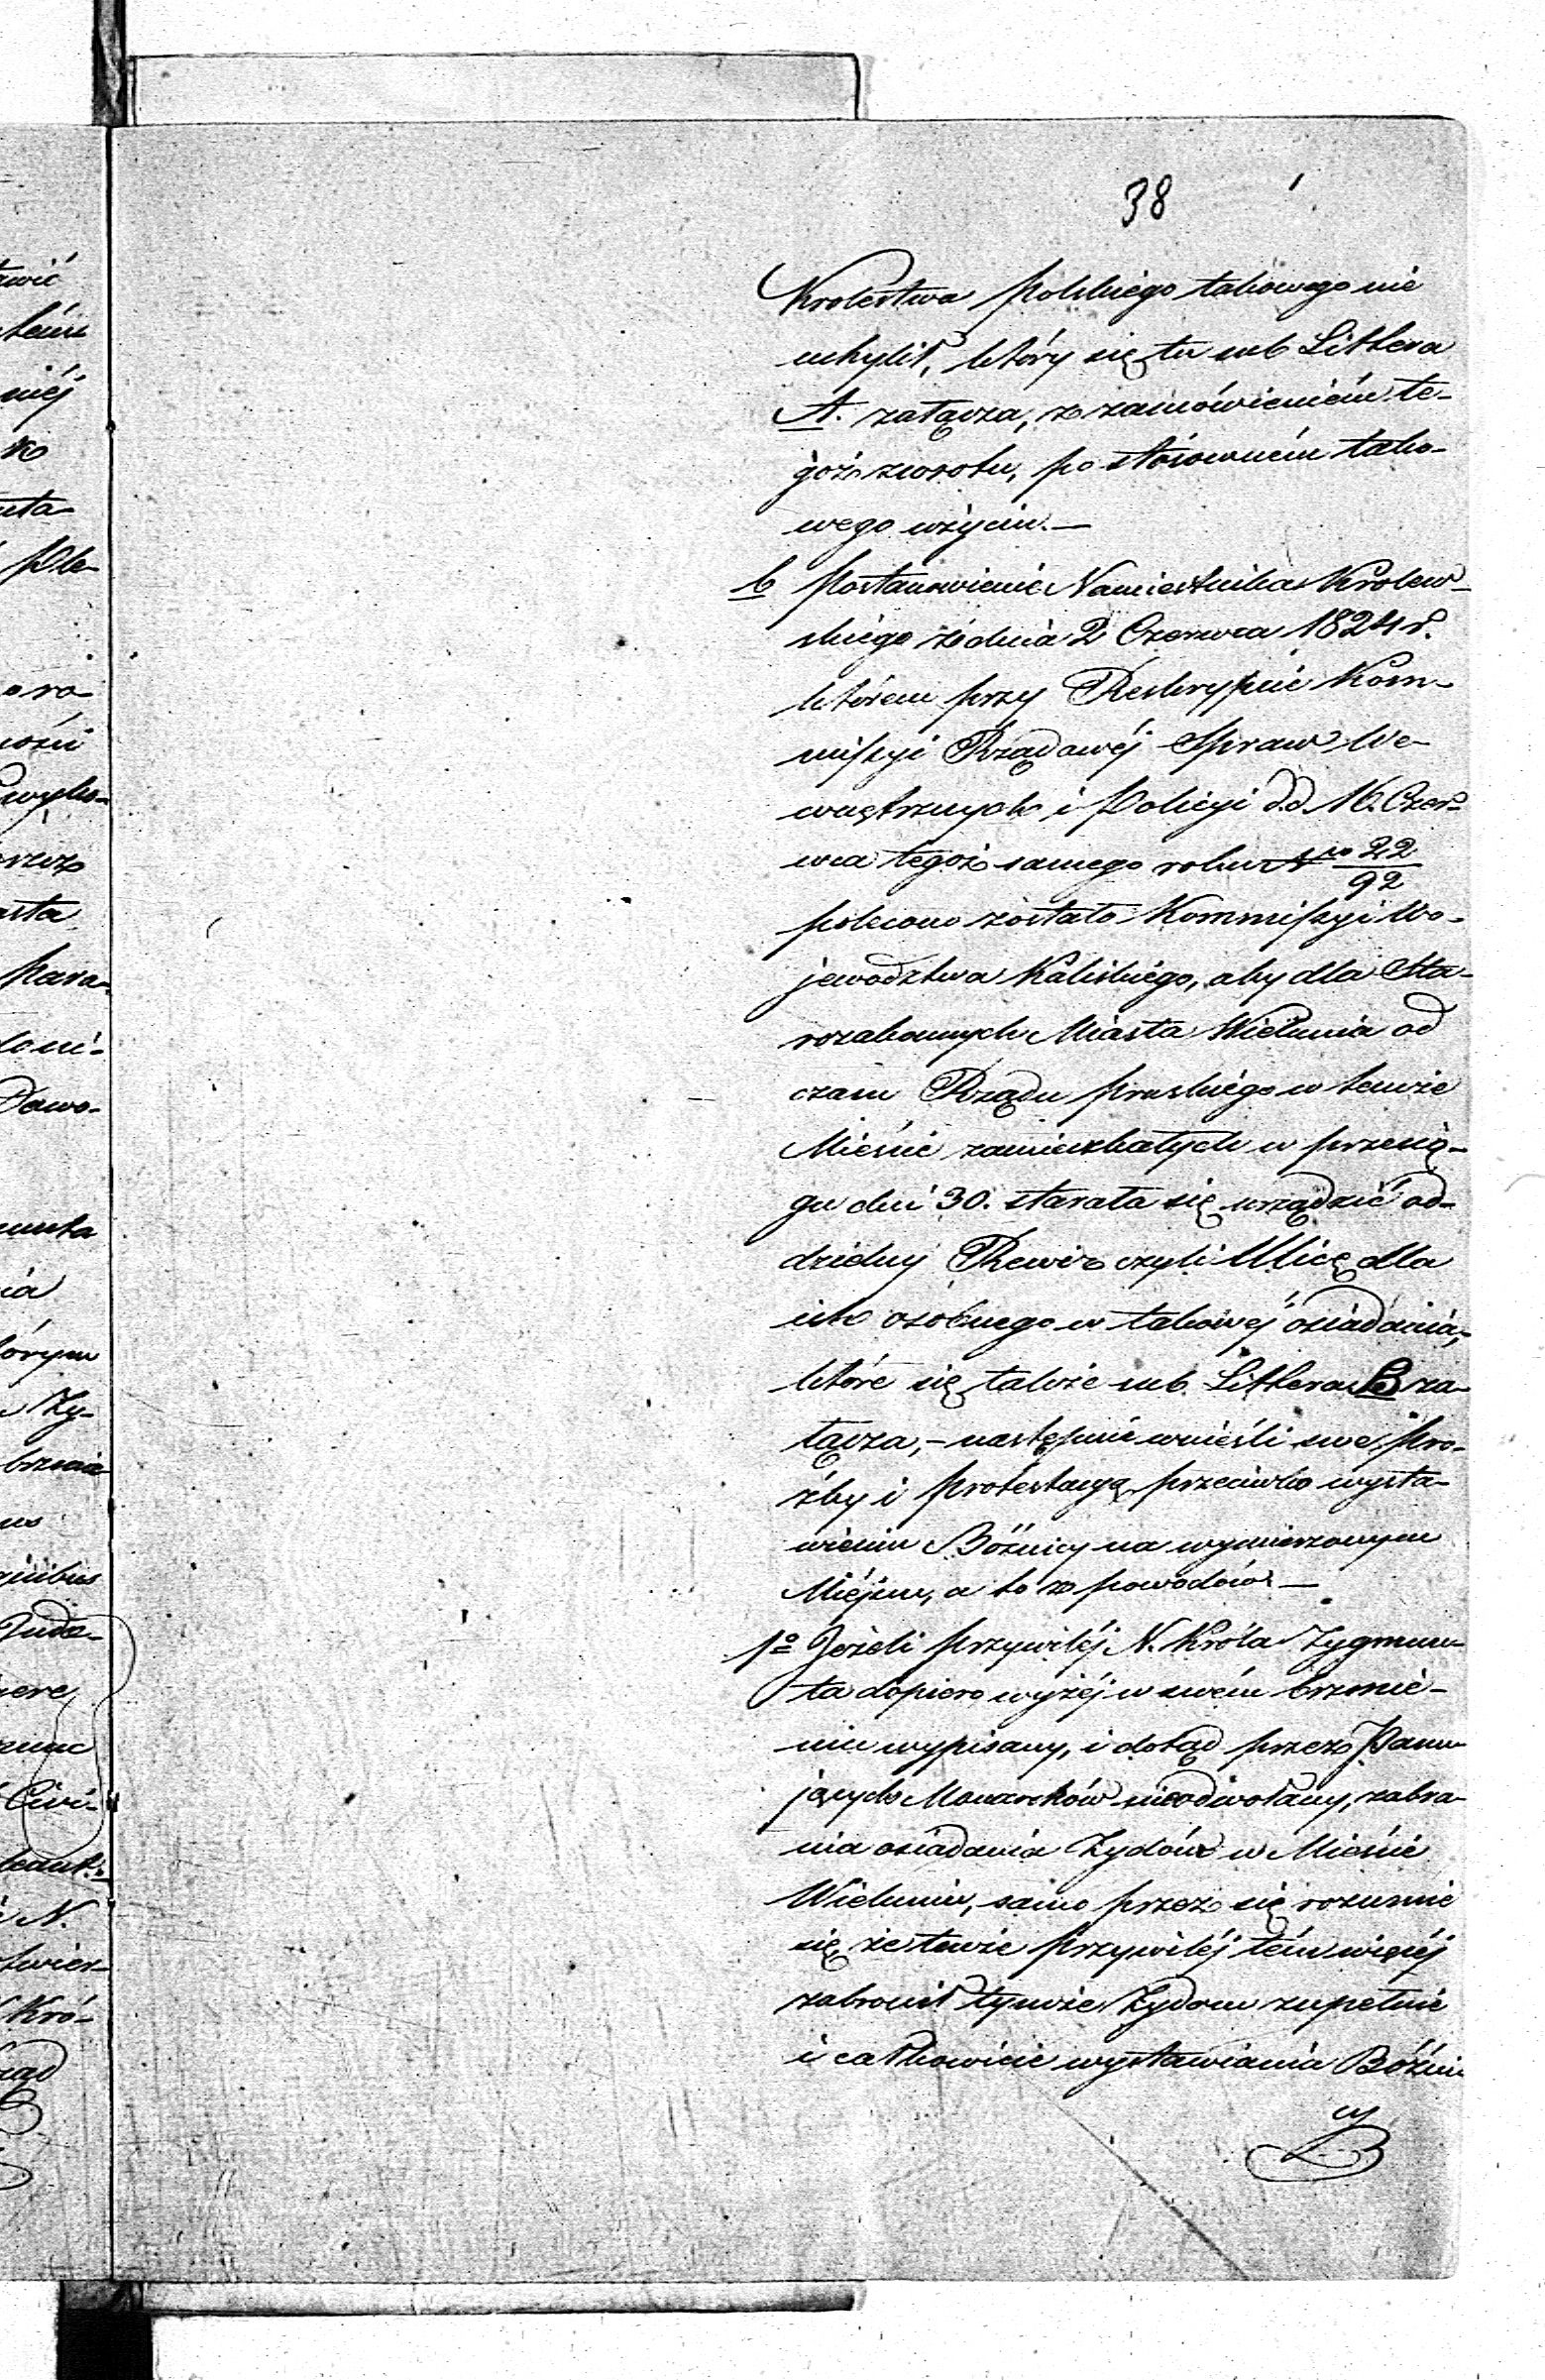 38
Krolestwa Polskiego takowego nie
uchylił, który się tu sub Littera
A. załącza, z zamówieniem te-
goż zwrotu, po stósownem tako-
wego użyciu.—
b Postanowienie Namiestnika Krolew-
skiego zdnia 2 Czerwca 1824 r.
którem przy Reskrypcie Kom-
missyi Rządowéj Spraw We-
wnętrznych i Policyi d.d 16. Czer-
wca tegoż samego roku Nro 22/92
polecono zostało Kommissyi Wo-
jewodztwa Kaliskiego, aby dla Sta-
rozakonnych Miasta Wielunia od
czasu Rządu pruskiego w temże
Mieście zamieszkałych w przecią-
gu dni 30. starała się urządzić od-
dzielny Rewir czyli Ulicę dla
ich osóbnego w takowéj osiadania,
które się także sub. Littera B za-
łącza,- następnie wnieśli swe pro-
źby i protestacyą przeciwko wysta-
wieniu Bóźnicy na wymierzonym
Miéjscu, a to z powodów —
1º Jeżeli przywiléj N. Króla Zygmun-
ta dopiero wyżéj w swém brzmie-
niu wypisany, i dotąd przez Panu-
jących Monarchów nieodwołany, zabra-
nia osiadania Zydów w Mieście
Wieluniu, samo przez się rozumie
się że tenże przywiléj tém więcéj
zabronił tymże Zydom zupełnie
i całkowicie wystawiania Bóźni
cy